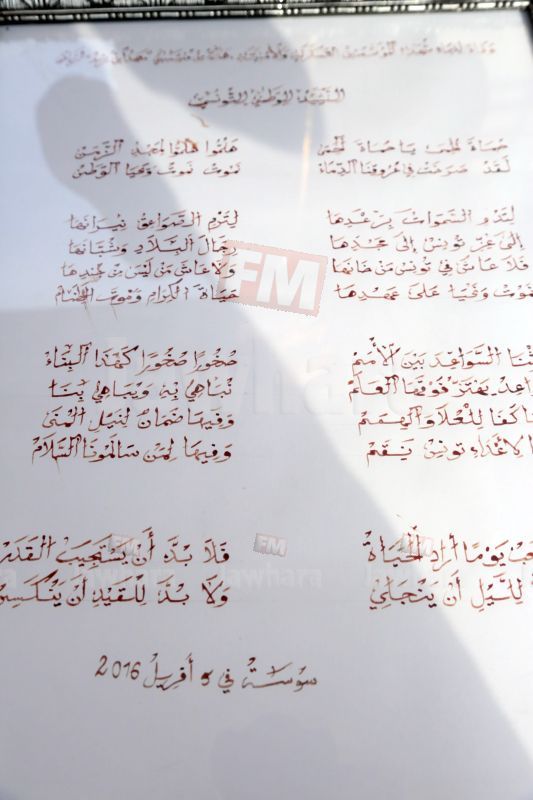 النشيد الوطني التونسي
حماة الحمى يا حماة الحمى هلموا هلموا لمجد الزمن
لقد صرخت في عروقنا الدماء نموت نموت ويحيا الوطن
لتدو السموات برعدها لترم الصواعق نيرانها
إلى عز تونس إلى مجدها رجال البلاد وشبانها
فلا عاش في تونس من خانها ولا عاش من ليس من جندها
نموت ونحيا على عهدها حياة الكرام وموت العظام
السواعد بين الأمم صخورا صخورا كهذا البناء
يهتز فوقها العلم نباهي به ويباهي بنا
كفا للعلا والهمم وفيها ضمان لنيل المنى
لأعداء تونس نقم وفيها لمن سالمونا السلام
يوما أراد الحياة فلا بد أن يستجيب القدر
لليل أن ينجلي ولا بد للقيد أن ينكسر
سوسة في 5 أفريل 2016
FM
Jawhara
FM
FM
Jawhara